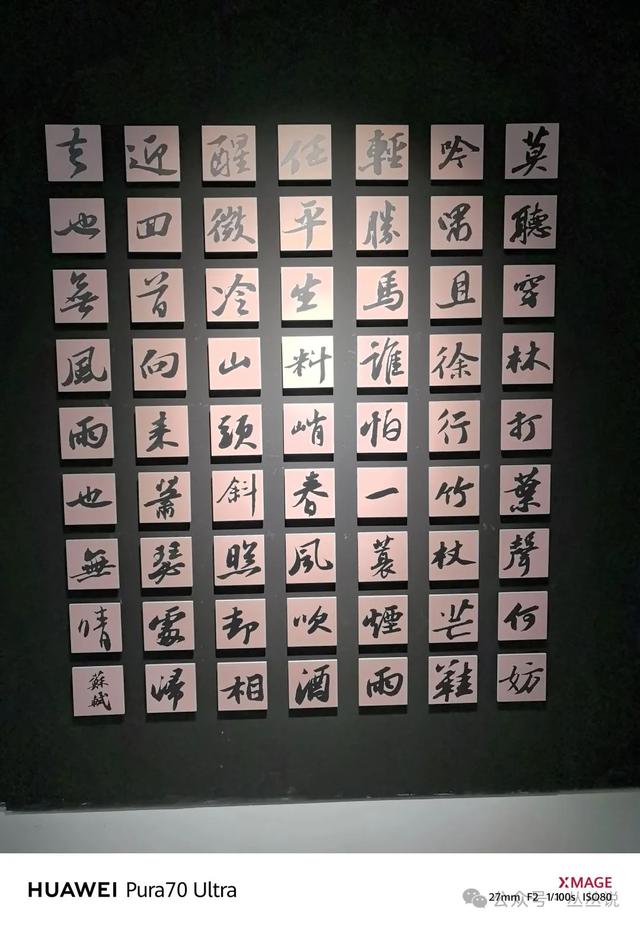 莫聽穿林打葉聲何妨
吟嘯且徐行竹杖芒鞋
輕勝馬誰怕一蓑煙雨
任平生料峭春風吹酒
醒微冷山頭斜照却相
迎回首向來蕭瑟處歸
去也無風雨也無晴蘇軾
HUAWEI Pura70 Ultra
XMAGE
27mm F2 1/100s ISO80
公众号·丛丛说